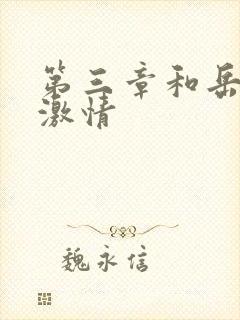 第三章和岳
激情
魏永信